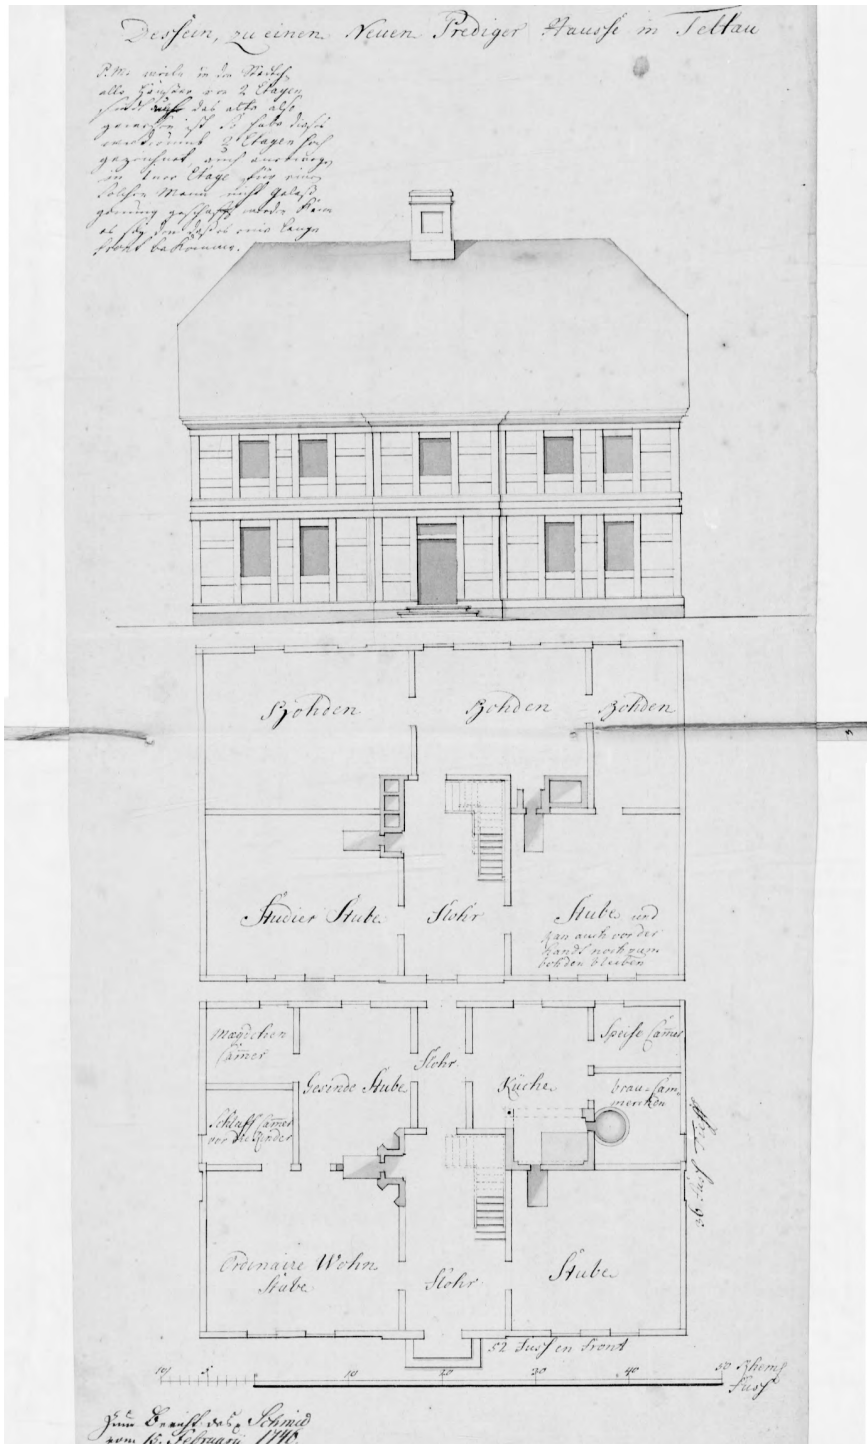 Dessein, zu einen Neuen Prediger Hausse in Tettau
P.M: weile in der
alle Häusser von 2 Etagen
sindt auch das alte also
gewesen ist, so habe dieses
2 Etagen hoch
gezeichnet, auch
in einer Etage für einen
solchen Mann nicht
genung geschafft werden kann
es sey den daß es eine lange
Front bekomme.
Bohden Bohden Bohden
Studier Stube Flohr Stube und
kan auch vor der
handt noch zum
bohden bleiben
Mägdchen
Cam̄er
Gesinde Stube
Flohr
Küche
Speise Cam̄er
brau-Cam̄
merchen
Schlaff Cam̄er
vor die Kinder
Ordinaire Wohn
Stube
Flohr
Stube
52 Fuss en Front
10 5 10 20 30 40 50 Rheinl
Fuss
Zum Bericht des p Schmid
vom 15. Februarii 1746.